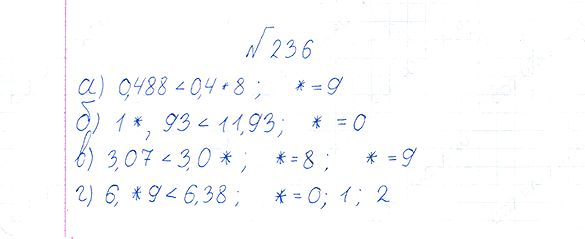 № 236
а) 0,488 < 0,4*8; * = 9
б) 1*,93 < 11,93; * = 0
в) 3,07 < 3,0*; * = 8; * = 9
г) 6,*9 < 6,38; * = 0; 1; 2